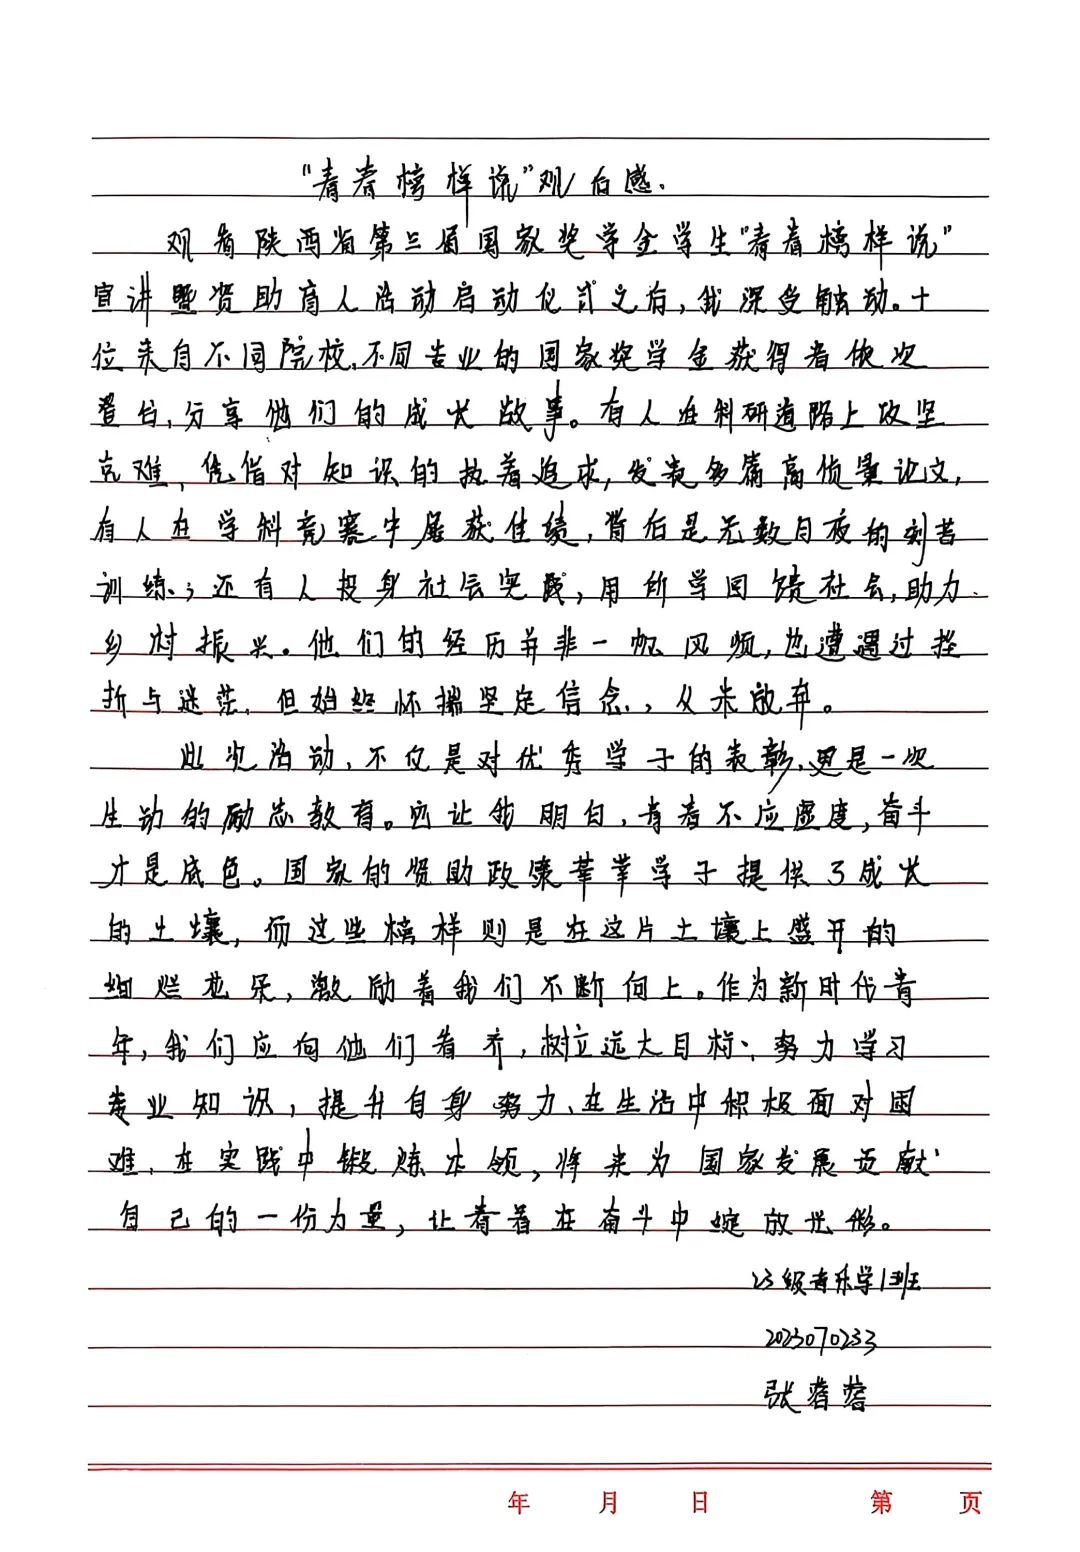 “青春榜样说”观后感.
观看陕西省第三届国家奖学金学生“青春榜样说”
宣讲暨资助育人活动启动仪式之后,我深受触动。十
位来自不同院校、不同专业的国家奖学金获得者依次
登台,分享他们的成长故事。有人在科研道路上攻坚
克难、凭借对知识的执着追求,发表多篇高质量论文,
有人在学科竞赛中屡获佳绩,背后是无数日夜的刻苦
训练;还有人投身社会实践,用所学回馈社会,助力
乡村振兴。他们的经历并非一帆风顺,也遭遇过挫
折与迷茫,但始终怀揣坚定信念,从未放弃。
此次活动,不仅是对优秀学子的表彰,更是一次
生动的励志教育。它让我明白,青春不应虚度,奋斗
才是底色。国家的资助政策莘莘学子提供了成长
的土壤,而这些榜样则是在这片土壤上盛开的
绚烂花朵,激励着我们不断向上。作为新时代青
年,我们应向他们看齐,树立远大目标、努力学习
专业知识,提升自身努力、在生活中积极面对困
难,在实践中锻炼本领,将来为国家发展贡献
自己的一份力量,让青春在奋斗中绽放光彩。
23级音乐学1班
2023070233
张蓉蓉
年 月 日 第 页